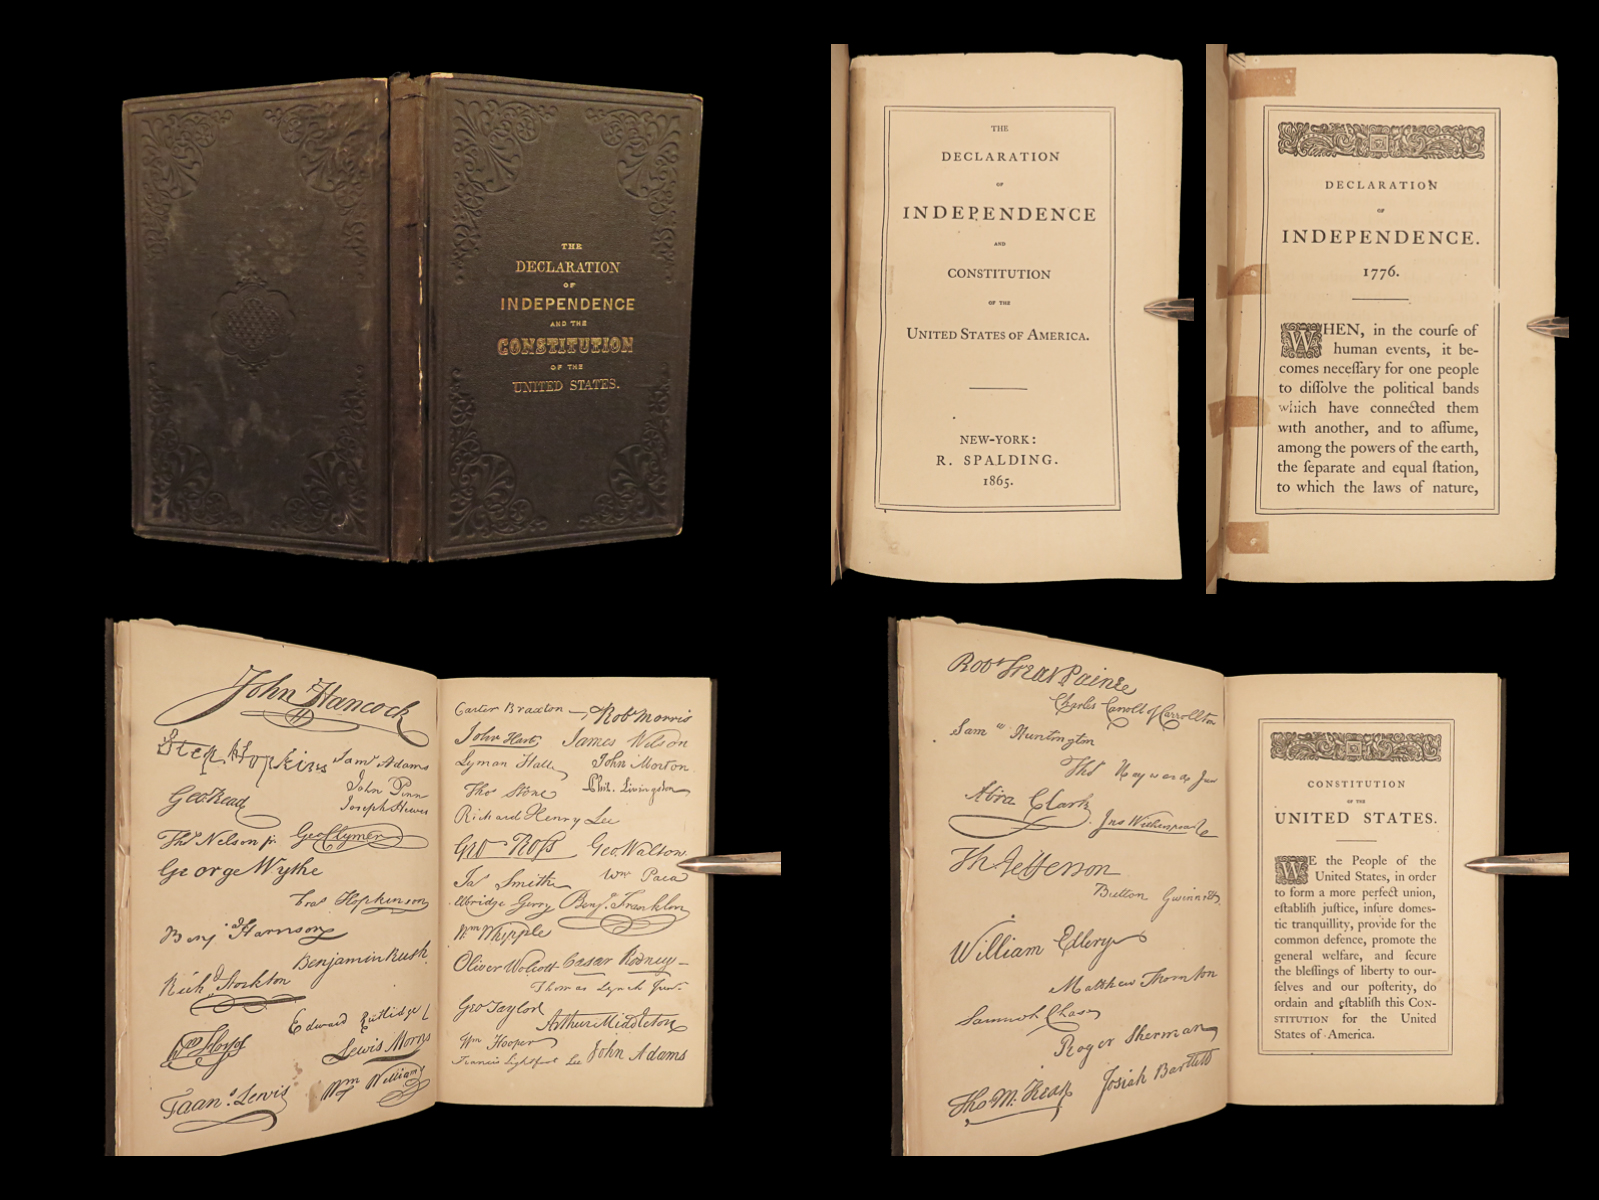 THE
DECLARATION
OF
INDEPENDENCE
AND THE
CONSTITUTION
OF THE
UNITED STATES.
THE
DECLARATION
OF
INDEPENDENCE
AND
CONSTITUTION
OF THE
UNITED STATES OF AMERICA.
NEW-YORK:
R. SPALDING.
1865.
DECLARATION
OF
INDEPENDENCE.
1776.
WHEN, in the courſe of
human events, it be-
comes neceſſary for one people
to diſſolve the political bands
which have connected them
with another, and to aſſume,
among the powers of the earth,
the ſeparate and equal ſtation,
to which the laws of nature,
John Hancock
Step. Hopkins
Saml Adams
John Penn
Joseph Hewes
Geo Read
Thos Nelson jr.
Geo Clymer
George Wythe
Fras Hopkinson
Benj Harrison
Benjamin Rush
Richd Stockton
Edward Rutledge
Wm Floyd
Lewis Morris
Frans. Lewis
Wm Williams
Carter Braxton
Robt Morris
John Hart
James Wilson
Lyman Hall
John Morton
Thos Stone
Phil. Livingston
Richard Henry Lee
Geo Roſs
Geo. Walton
Wm Paca
Jas Smith
Elbridge Gerry
Benj. Franklin
Wm Whipple
Oliver Wolcott
Cæsar Rodney
Thomas Lynch Junr.
Geo Taylor
Arthur Middleton
Wm Hooper
Francis Lightfoot Lee
John Adams
Robt Treat Paine
Charles Carroll of Carrollton
Saml Huntington
Thos Heyward Junr
Abra Clark
Jno Witherspoon
Th Jefferson
Button Gwinnett
William Ellery
Matthew Thornton
Samuel Chase
Roger Sherman
Tho M. Kean
Josiah Bartlett
CONSTITUTION
OF THE
UNITED STATES.
WE the People of the
United States, in order
to form a more perfect union,
eſtabliſh juſtice, inſure domes-
tic tranquillity, provide for the
common defence, promote the
general welfare, and ſecure
the bleſſings of liberty to our-
ſelves and our poſterity, do
ordain and eſtabliſh this CON-
STITUTION for the United
States of America.